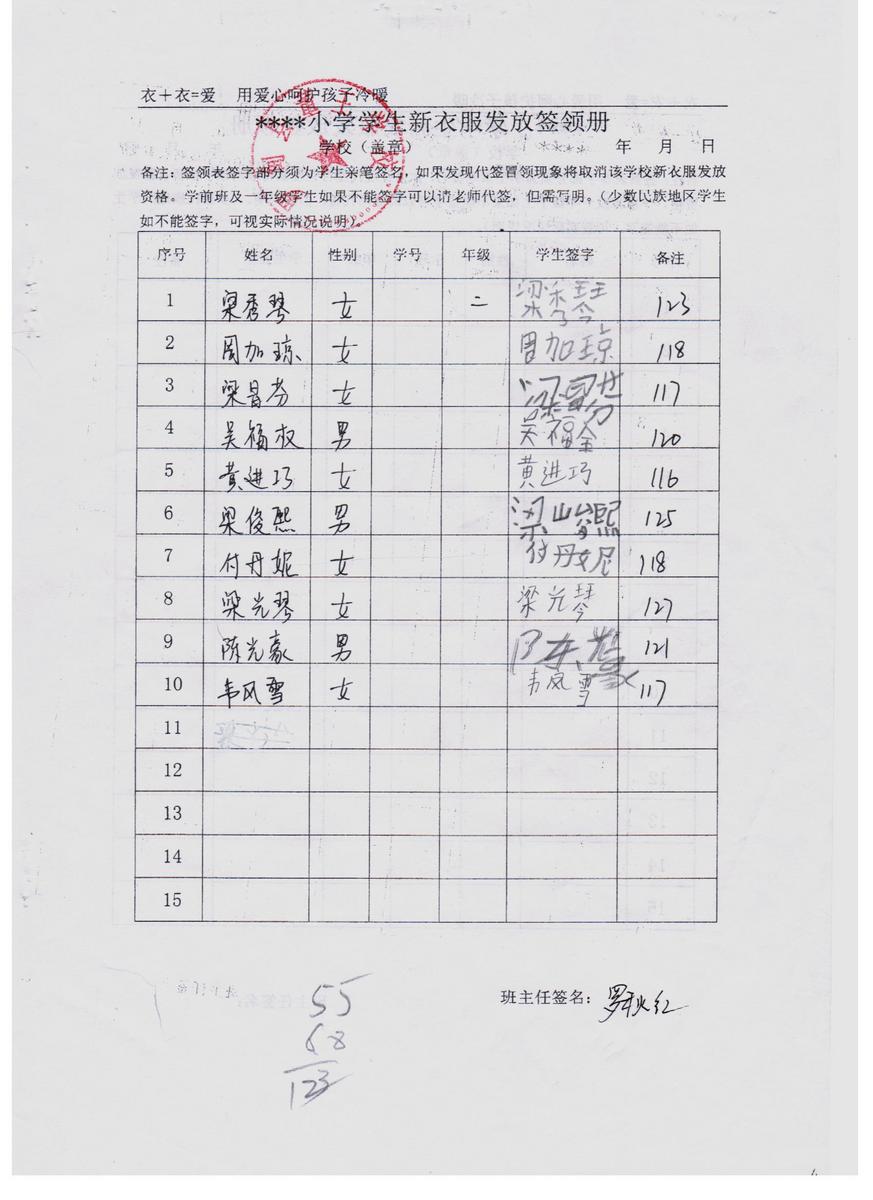 衣+衣=爱 用爱心呵护孩子冷暖
****小学学生新衣服发放签领册
学校（盖章） 年 月 日
备注：签领表签字部分须为学生亲笔签名，如果发现代签冒领现象将取消该学校新衣服发放
资格。学前班及一年级学生如果不能签字可以请老师代签，但需写明。（少数民族地区学生
如不能签字，可视实际情况说明）
序号 姓名 性别 学号 年级 学生签字 备注
1 梁秀琴 女 二 梁秀琴 123
2 周加琼 女 周加琼 118
3 梁昌芬 女 梁昌芬 117
4 吴福权 男 吴福全 120
5 黄进巧 女 黄进巧 116
6 梁俊熙 男 125
7 付丹妮 女 付丹妮 118
8 梁光琴 女 梁光琴 127
9 陈光豪 男 陈光豪 121
10 韦风雪 女 韦风雪 117
11
12
13
14
15
班主任签名：罗秋红
55
68
123